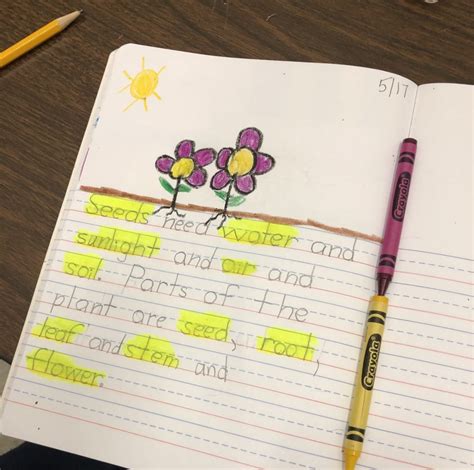 5/17
Seeds need water and
sunlight and air and
soil. Parts of the
plant are seed, root,
leaf and stem and
flower.
Crayola
Crayola